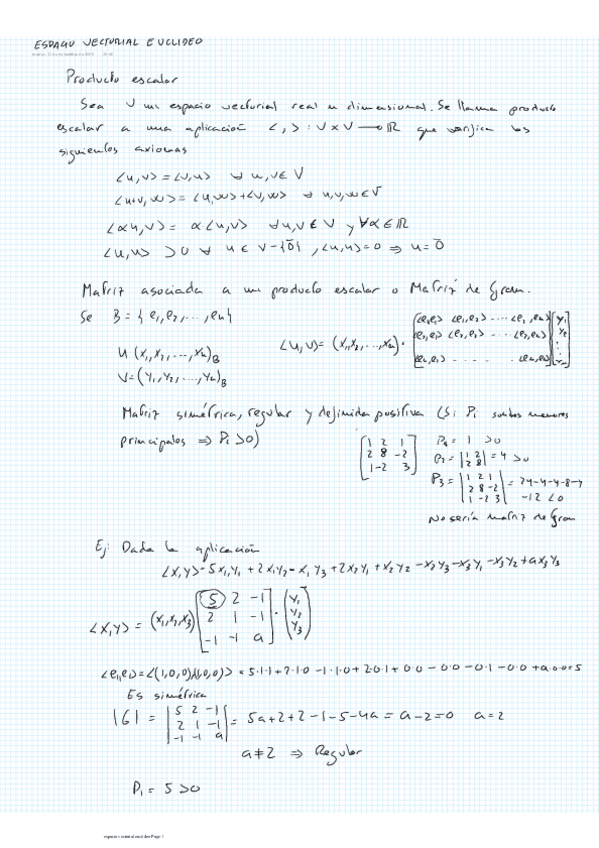 ESPACIO VECTORIAL EUCLIDEO
Producto escalar
Sea V un espacio vectorial real n dimensional. Se llama producto
escalar a una aplicación <,> : V x V → ℝ que verifica los
siguientes axiomas
<u,v> = <v,u> ∀ u,v ∈ V
<u+v,w> = <u,w> + <v,w> ∀ u,v,w ∈ V
<αu,v> = α<u,v> ∀u,v ∈ V y ∀α ∈ ℝ
<u,u> > 0 ∀ u ∈ V-{0̄} , <u,u> = 0 ⇒ u = 0̄
Matriz asociada a un producto escalar o Matriz de Gram.
Se B = { e₁,e₂, ..., en}
u (x₁,x₂,...,xn)B
v = (y₁,y₂,...,yn)B
<u,v> = (x₁,x₂,...,xn) · [<e₁,e₁> <e₁,e₂> ... <e₁,en>] [y₁]
[<e₂,e₁> <e₂,e₂> ... <e₂,en>] [y₂]
[<en,e₁> ... <en,en>] [yn]
Matriz simétrica, regular y definida positiva (Si Pi son los menores
principales ⇒ Pi > 0)
[1 2 1]
[2 8 -2]
[1 -2 3]
P₁ = 1 > 0
P₂ = |1 2|
|2 8| = 4 > 0
P₃ = |1 2 1|
|2 8 -2| = 24-4-4-8-4
|1 -2 3| -12 < 0
No sería matriz de Gram
Ej: Dada la aplicación
<x,y> = 5x₁y₁ + 2x₁y₂ - x₁y₃ + 2x₂y₁ + x₂y₂ - x₂y₃ - x₃y₁ - x₃y₂ + ax₃y₃
<x,y> = (x₁,x₂,x₃) [5 2 -1] · (y₁)
[2 1 -1] (y₂)
[-1 -1 a] (y₃)
<e₁,e₁> = <(1,0,0)(1,0,0)> = 5·1·1 + 2·1·0 - 1·1·0 + 2·0·1 + 0·0 - 0·0 - 0·1 - 0·0 + a·0·0 = 5
Es simétrica
|G| = |5 2 -1|
|2 1 -1| = 5a+2+2-1-5-4a = a-2=0 a=2
|-1 -1 a|
a≠2 ⇒ Regular
P₁ = 5 > 0
espacio vectorial euclideo Page 1